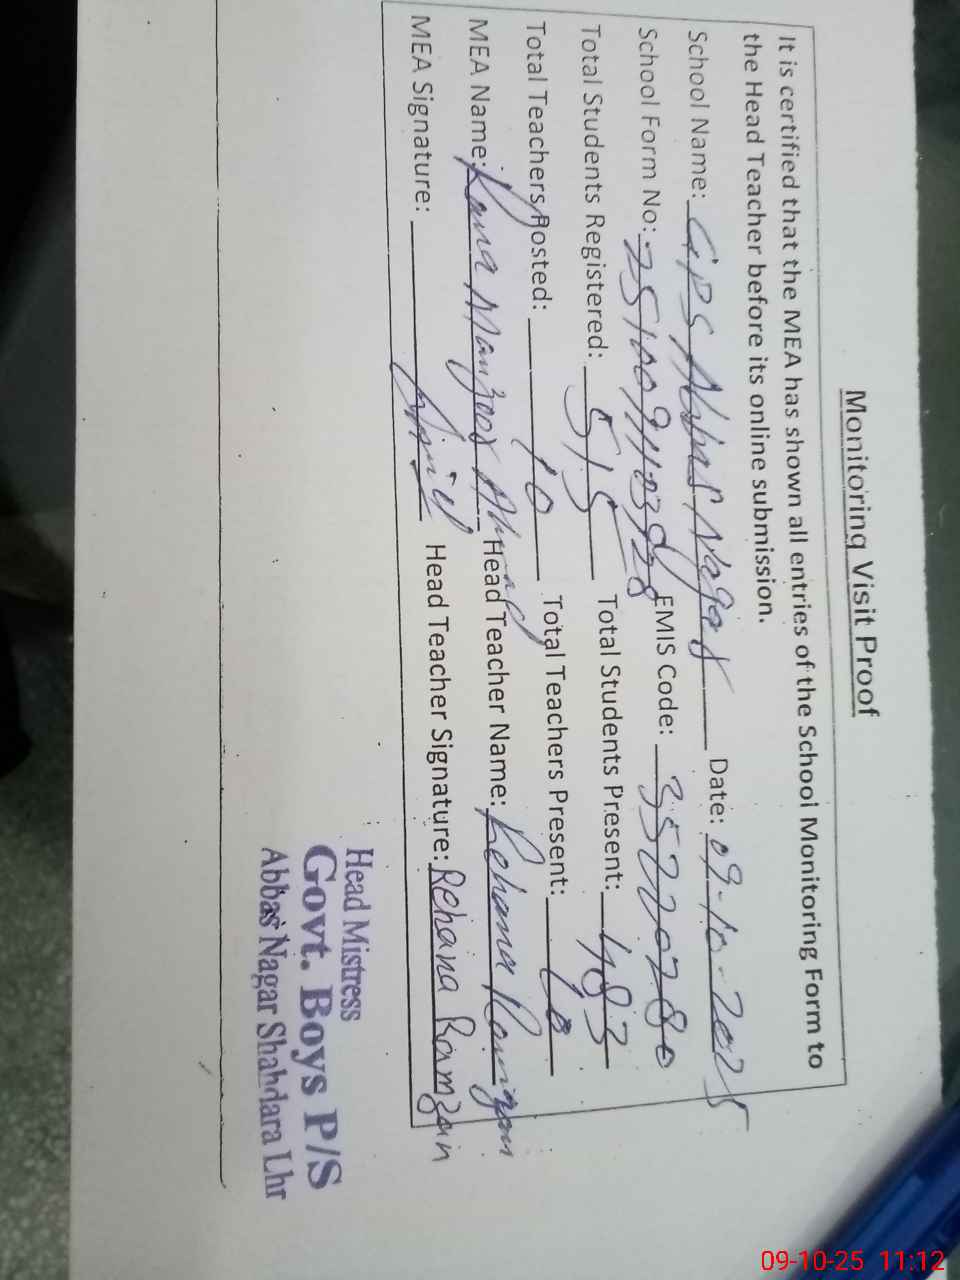 Monitoring Visit Proof
It is certified that the MEA has shown all entries of the School Monitoring Form to
the Head Teacher before its online submission.
School Name: GPS Abbas Nagar Date: 09-10-2025
School Form No: EMIS Code: 35220780
Total Students Registered: 515 Total Students Present: 483
Total Teachers Posted: 10 Total Teachers Present: 10
MEA Name: Rana Manzoor Ahmad Head Teacher Name: Rehana Ramzan
MEA Signature: Head Teacher Signature: Rehana Ramzan
Head Mistress
Govt. Boys P/S
Abbas Nagar Shahdara Lhr
09-10-25 11:12